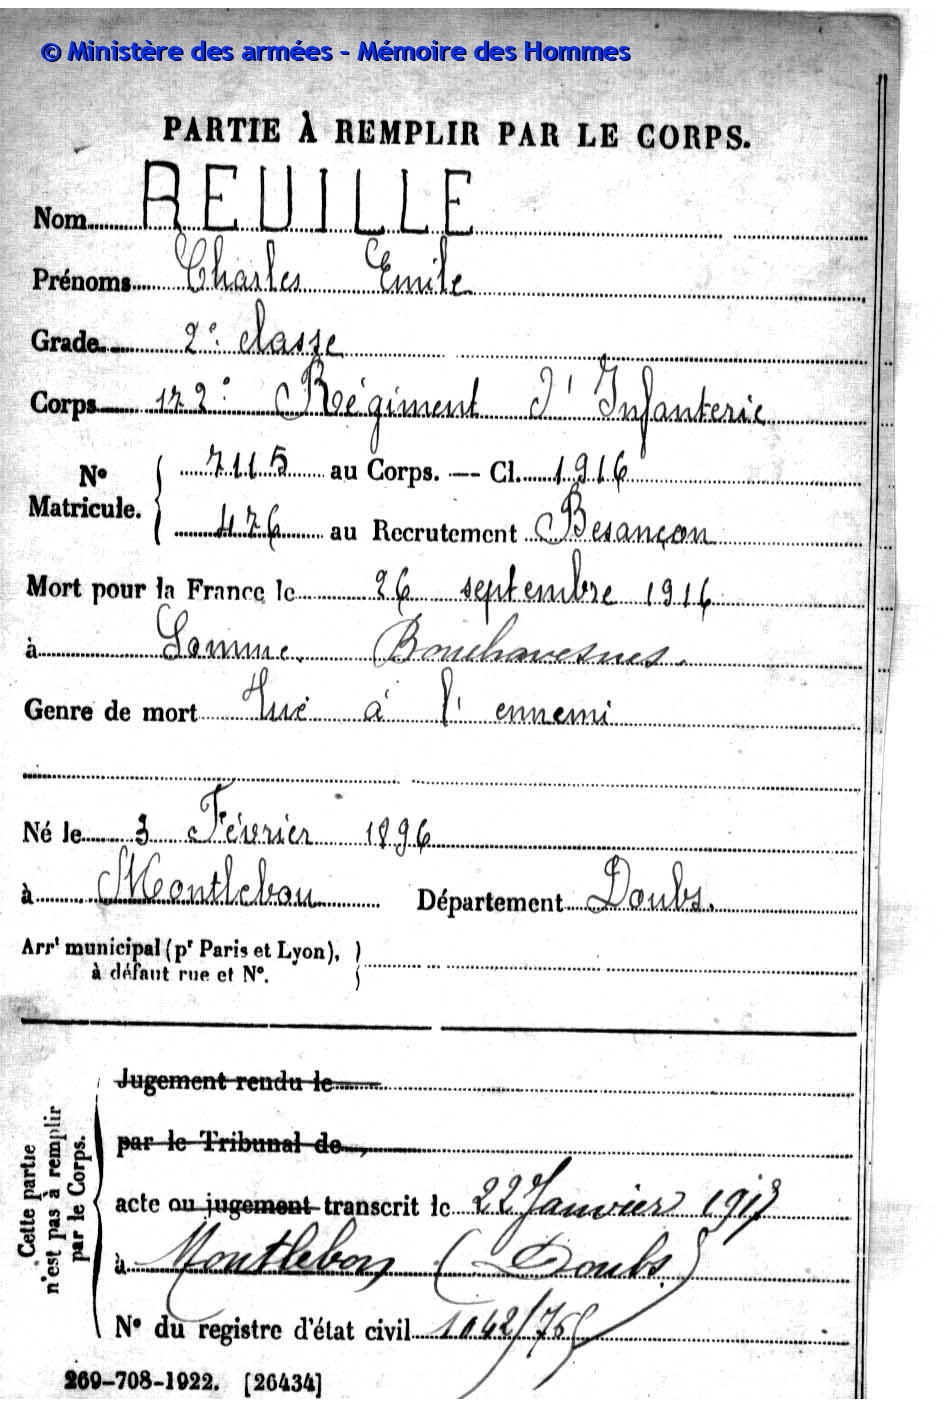 © Ministère des armées - Mémoire des Hommes
PARTIE À REMPLIR PAR LE CORPS.
Nom REUILLE
Prénoms Charles Emile
Grade 2e classe
Corps 172e Régiment d'Infanterie
Nº Matricule. 7115 au Corps. — Cl. 1916
476 au Recrutement Besançon
Mort pour la France le 26 septembre 1916
à Somme. Bouchavesnes.
Genre de mort Tué à l'ennemi
Né le 3 Février 1896
à Montlebon Département Doubs.
Arrt municipal (pr Paris et Lyon),
à défaut rue et Nº.
Cette partie n'est pas à remplir par le Corps.
Jugement rendu le
par le Tribunal de
acte ou jugement transcrit le 22 Janvier 1917
à Montlebon (Doubs)
Nº du registre d'état civil 1042/75
269-708-1922. [26434]